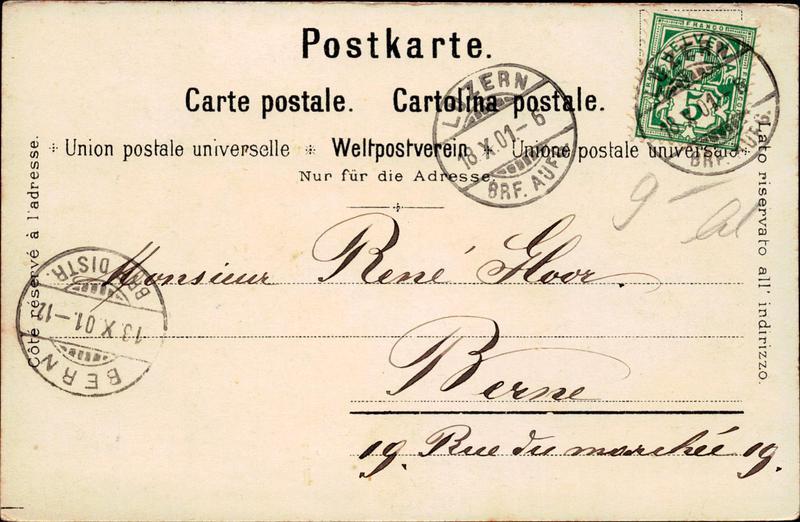 Postkarte.
Carte postale. Cartolina postale.
Union postale universelle * Weltpostverein * Unione postale universale
Nur für die Adresse.
Côté réservé à l'adresse.
Lato riservato all' indirizzo.
FRANCO
HELVETIA
5
LUZERN
18.X.01-6
BRF. AUFG.
BRF. AUFG.
BRF. DISTR.
13.X.01.-12
BERN
9
Monsieur René Gloor.
Berne
19. Rue du marchée 19.